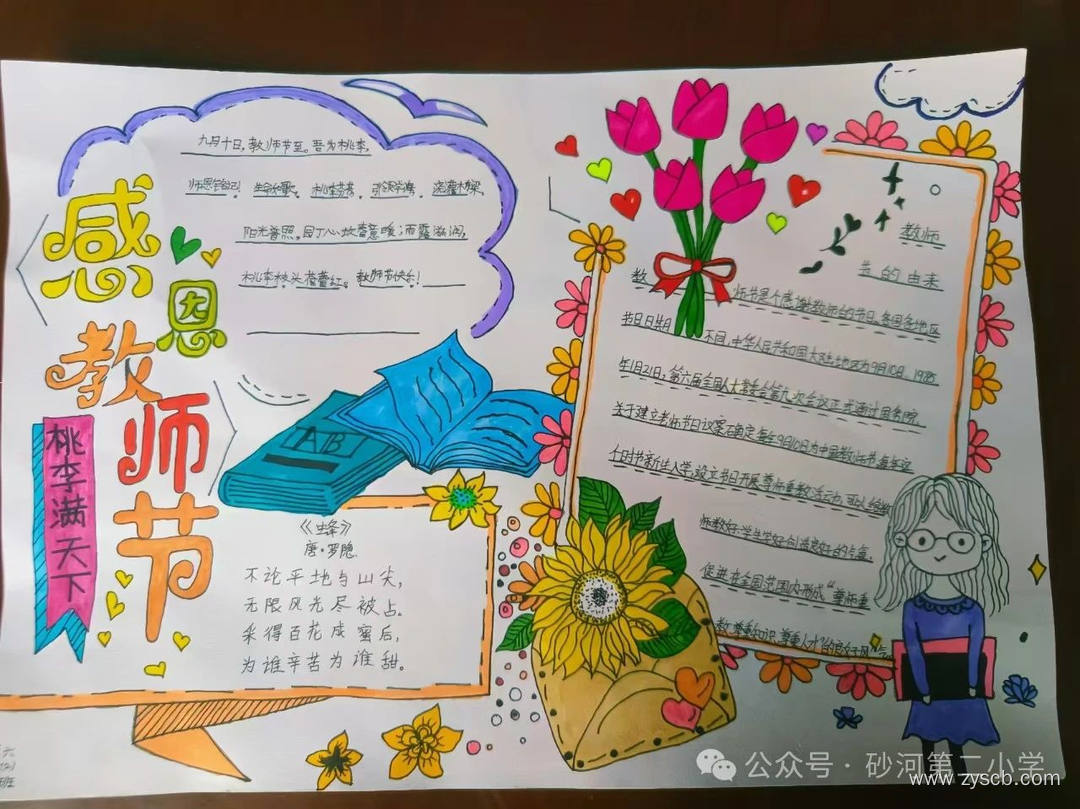 感恩
教师节
桃李满天下
九月十日，教师节至。吾为桃李，
阳光普照，园丁心坎春意暖；雨露滋润，
桃李枝头蓓蕾红。教师节快乐！
AB
《蜂》
唐·罗隐
不论平地与山尖，
无限风光尽被占。
采得百花成蜜后，
为谁辛苦为谁甜。
教师
节的由来
教师节是个感谢教师的节日。各国各地区
节日日期不同，中华人民共和国大陆地区为9月10日，1985
年1月21日，第六届全国人大常委会第九次会议正式通过国务院
关于建立老师节日议案，确定每年9月10日为中国教师节，每年这
个时节新生入学，设立节日开展尊师重教活动，可以给教
师教好，学生学好创造良好的气氛。
促进在全国范围内形成“尊师重
教，尊重知识，尊重人才”的良好风气。
六
(2)
班
公众号·砂河第二小学
www.zyscb.com